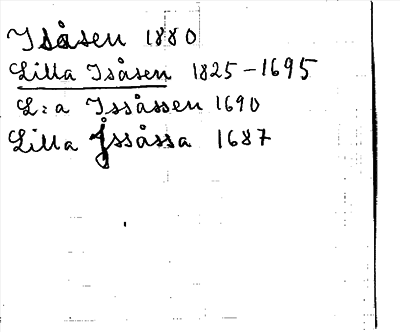 Isåsen 1880
Lilla Isåsen 1825-1695
L:a Issåssen 1690
Lilla Åssåssa 1687